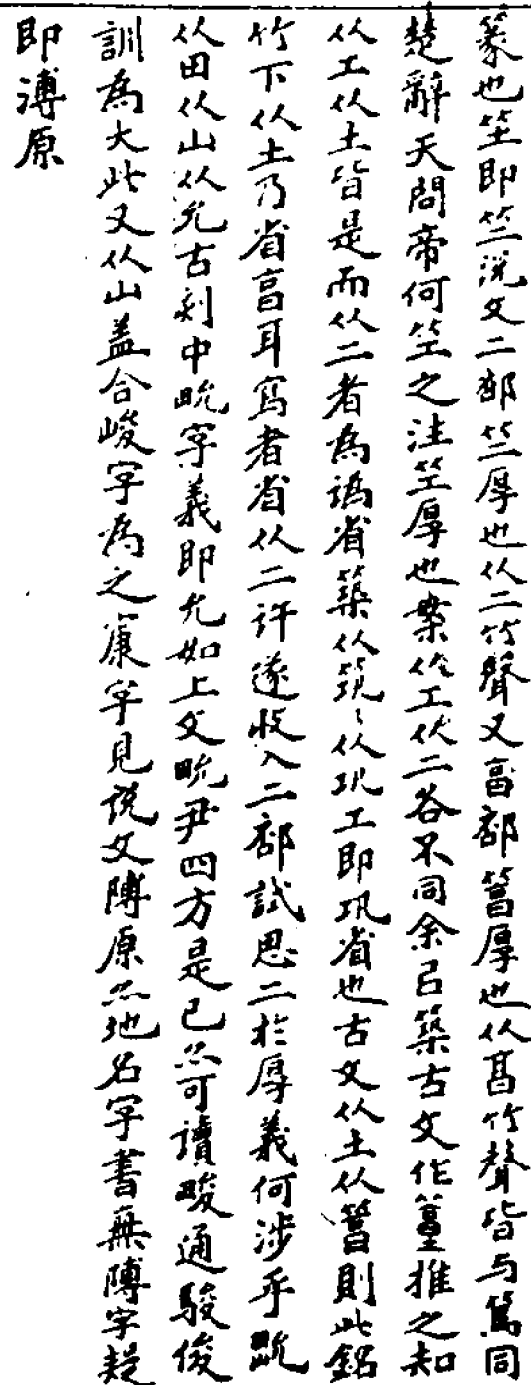 篆也笁即竺説文二部竺厚也从二竹聲又畗部䈞厚也从畗竹聲皆与篤同
楚辭天問帝何笁之注笁厚也案作工伙二各不同余㠯築古文作䈞推之知
从工从土皆是而从二者為譌省築从筑〻从巩工即巩省也古文从土从䈞則此銘
竹下从土乃省畗耳寫者省从二許遂收入二部試思二於厚義何涉乎㽙
从田从山从允古刻中㽙字義即允如上文㽙尹四方是已亦可讀畯通駿俊
訓為大此又从山蓋合峻字為之康字見説文䧹原亦地名字書無䧹字疑
即溥原